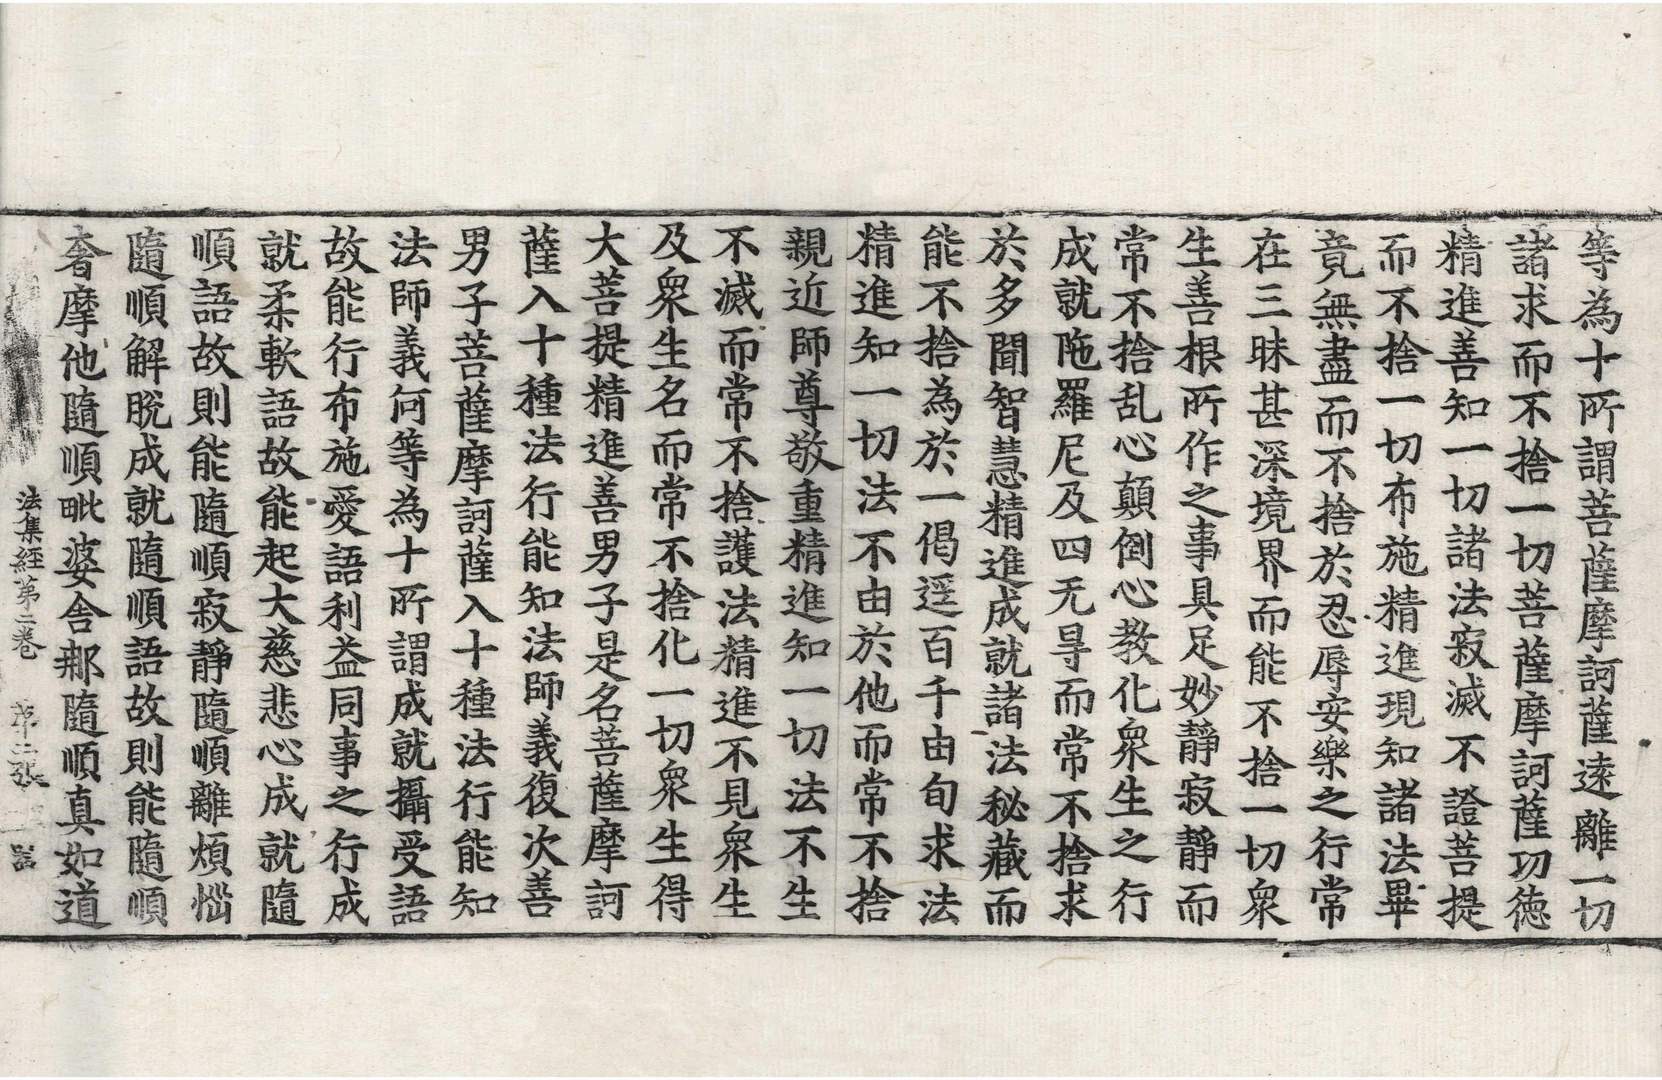 等為十所謂菩薩摩訶薩遠離一切
諸求而不捨一切菩薩摩訶薩功德
精進善知一切諸法寂滅不證菩提
而不捨一切布施精進現知諸法畢
竟無盡而不捨於忍辱安樂之行常
在三昧甚深境界而能不捨一切衆
生善根所作之事具足妙靜寂靜而
常不捨乱心顛倒心教化衆生之行
成就陁羅尼及四无㝵而常不捨求
於多聞智慧精進成就諸法秘藏而
能不捨為於一偈逕百千由旬求法
精進知一切法不由於他而常不捨
親近師尊敬重精進知一切法不生
不滅而常不捨護法精進不見衆生
及衆生名而常不捨化一切衆生得
大菩提精進善男子是名菩薩摩訶
薩入十種法行能知法師義復次善
男子菩薩摩訶薩入十種法行能知
法師義何等為十所謂成就攝受語
故能行布施愛語利益同事之行成
就柔軟語故能起大慈悲心成就隨
順語故則能隨順寂靜隨順離煩惱
隨順解脫成就隨順語故則能隨順
奢摩他隨順毗婆舍那隨順真如道
法集經第二卷 第二張 器